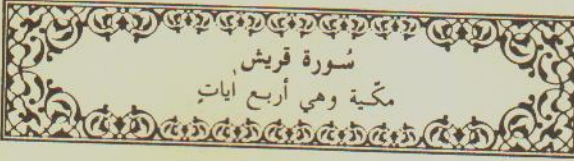 سُورة قريش
مكّية وهي أربع اٰياتٍ